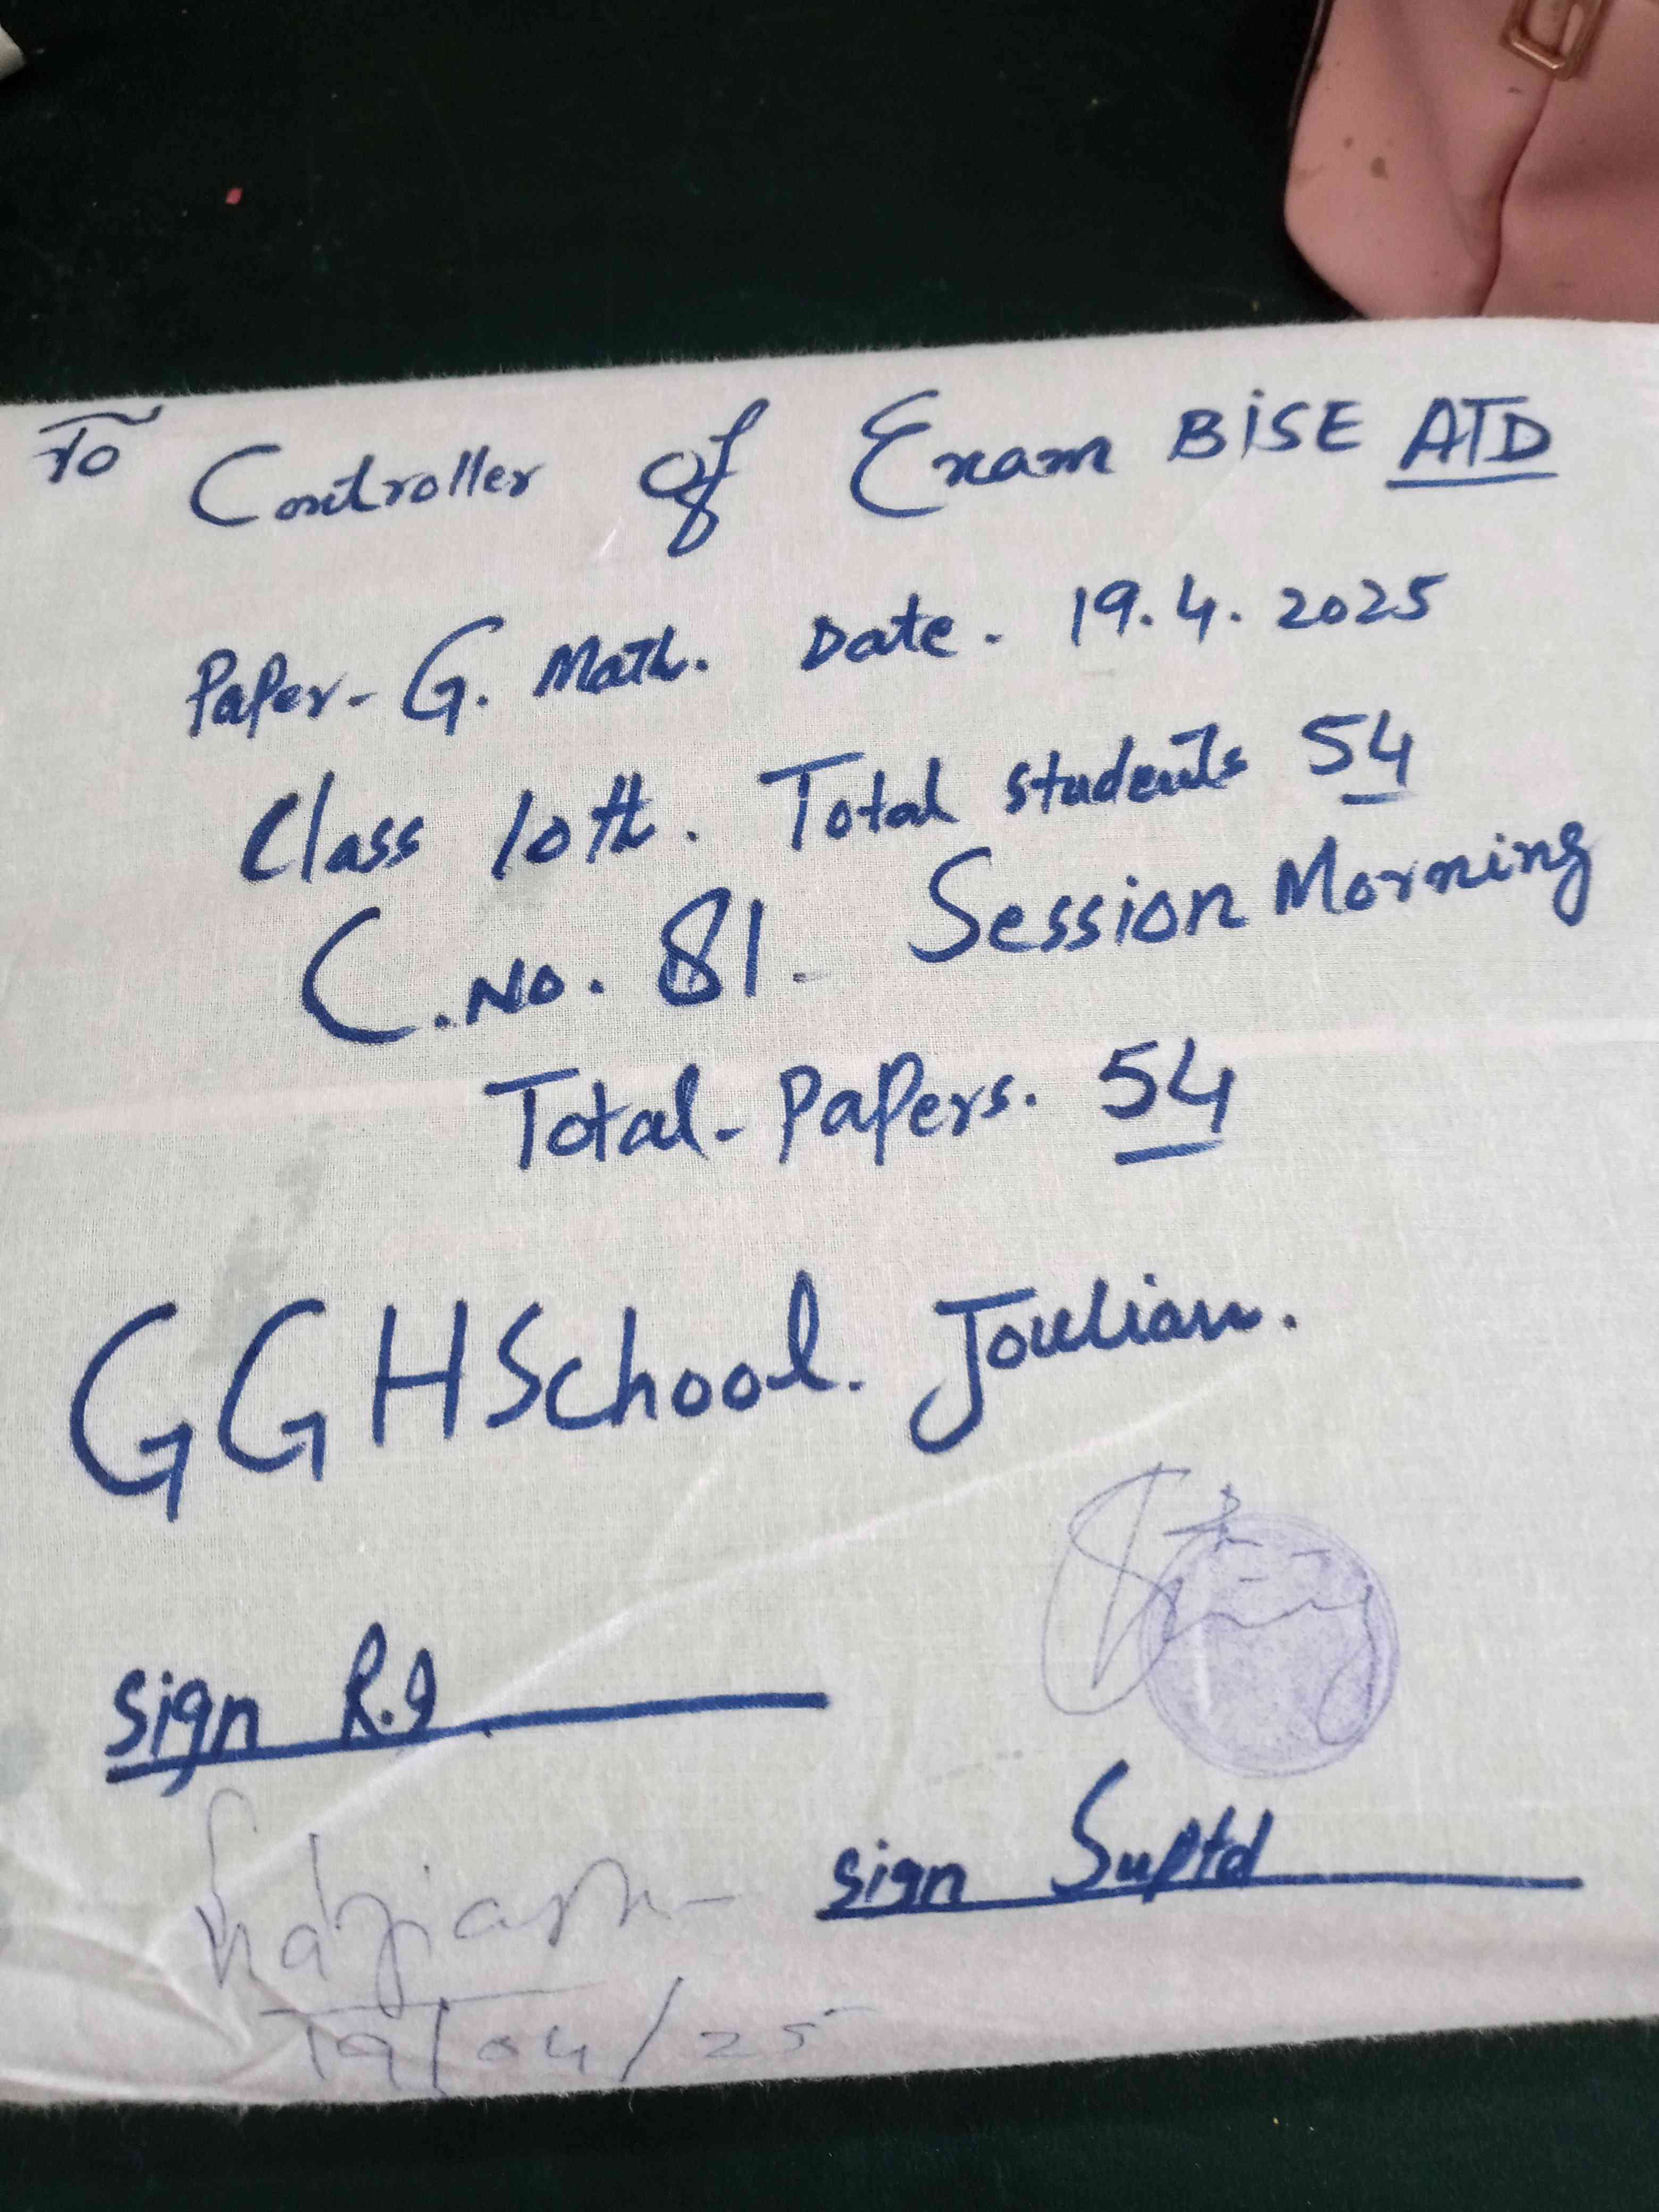 To Controller of Exam BISE ATD
Paper- G. Math. Date. 19.4.2025
Class 10th. Total students 54
C.No. 81. Session Morning
Total- Papers. 54
GGHSchool. Joulian.
Sign R.I
Sign Suptd
19/04/25